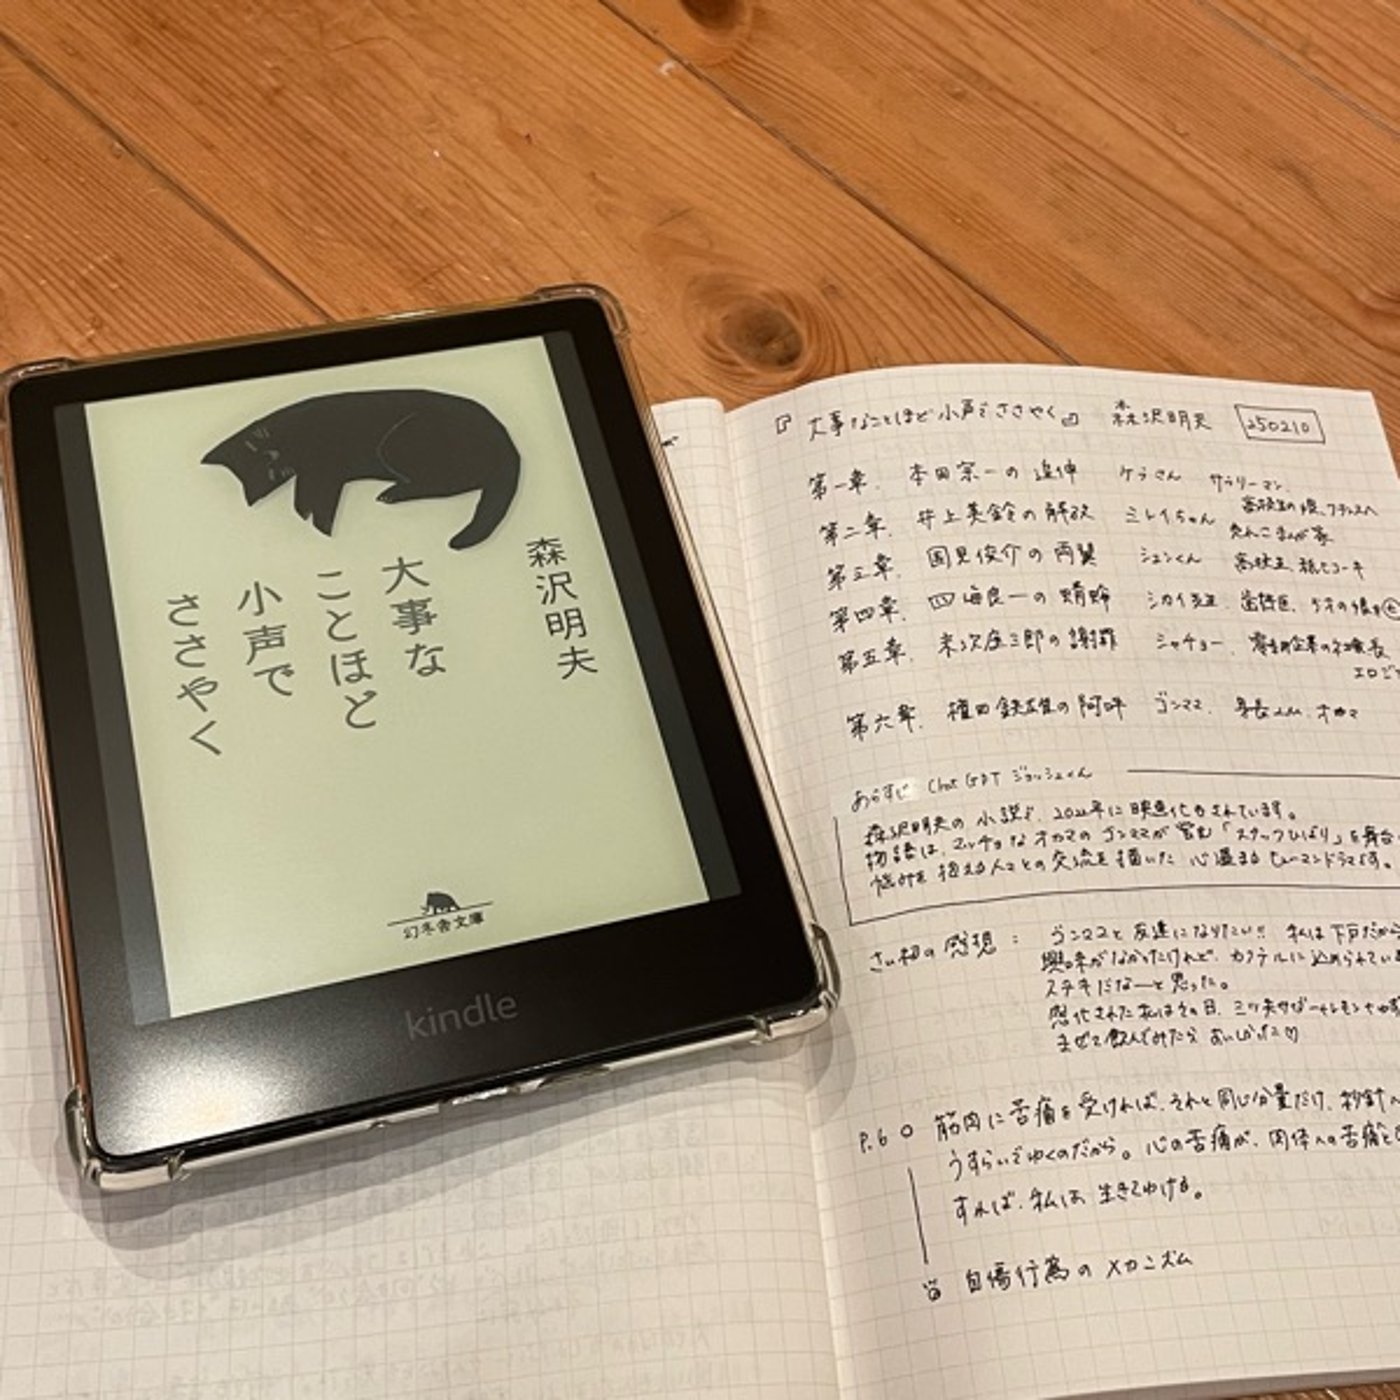 森沢明夫
大事な
ことほど
小声で
ささやく
幻冬舎文庫
kindle
『大事なことほど小声でささやく』 森沢明夫 250210
第一章. 本田宗一の追伸 ケラさん サラリーマン、
高校生の娘、フランスへ
第二章. 井上美鈴の解放 ミレイちゃん 売れっこまんが家
第三章. 国見俊介の両翼 シュンくん 高校生、
第四章. 四海良一の蜻蛉 シカイ先生. 歯科医、
第五章. 末次庄三郎の謝罪 シャチョー. 零細企業の社長
エロジ
第六章. 権田鉄雄の阿吽 ゴンママ. 身長2m、オカマ
あらすじ Chat GPT ジョッシュくん
森沢明夫の小説で、2022年に映画化もされています。
物語は、マッチョなオカマのゴンママが営む「スナックひばり」を舞台
悩みを抱える人々との交流を描いた心温まるヒューマンドラマです。
さい初の感想: ゴンママと友達になりたい!! 私は下戸だから
興味がなかったけれど、カクテルに込められている
ステキだなーと思った。
感化された私はその日、三ツ矢サイダーとレモン
まぜて飲んでみたらおいしかった♡
P.6 ○ 筋肉に苦痛を受ければ、それと同じ分量だけ、秒針
うすらいでゆくのだから。心の苦痛が、肉体への苦痛と
すれば、私は、生きてゆける。
自傷行為のメカニズム